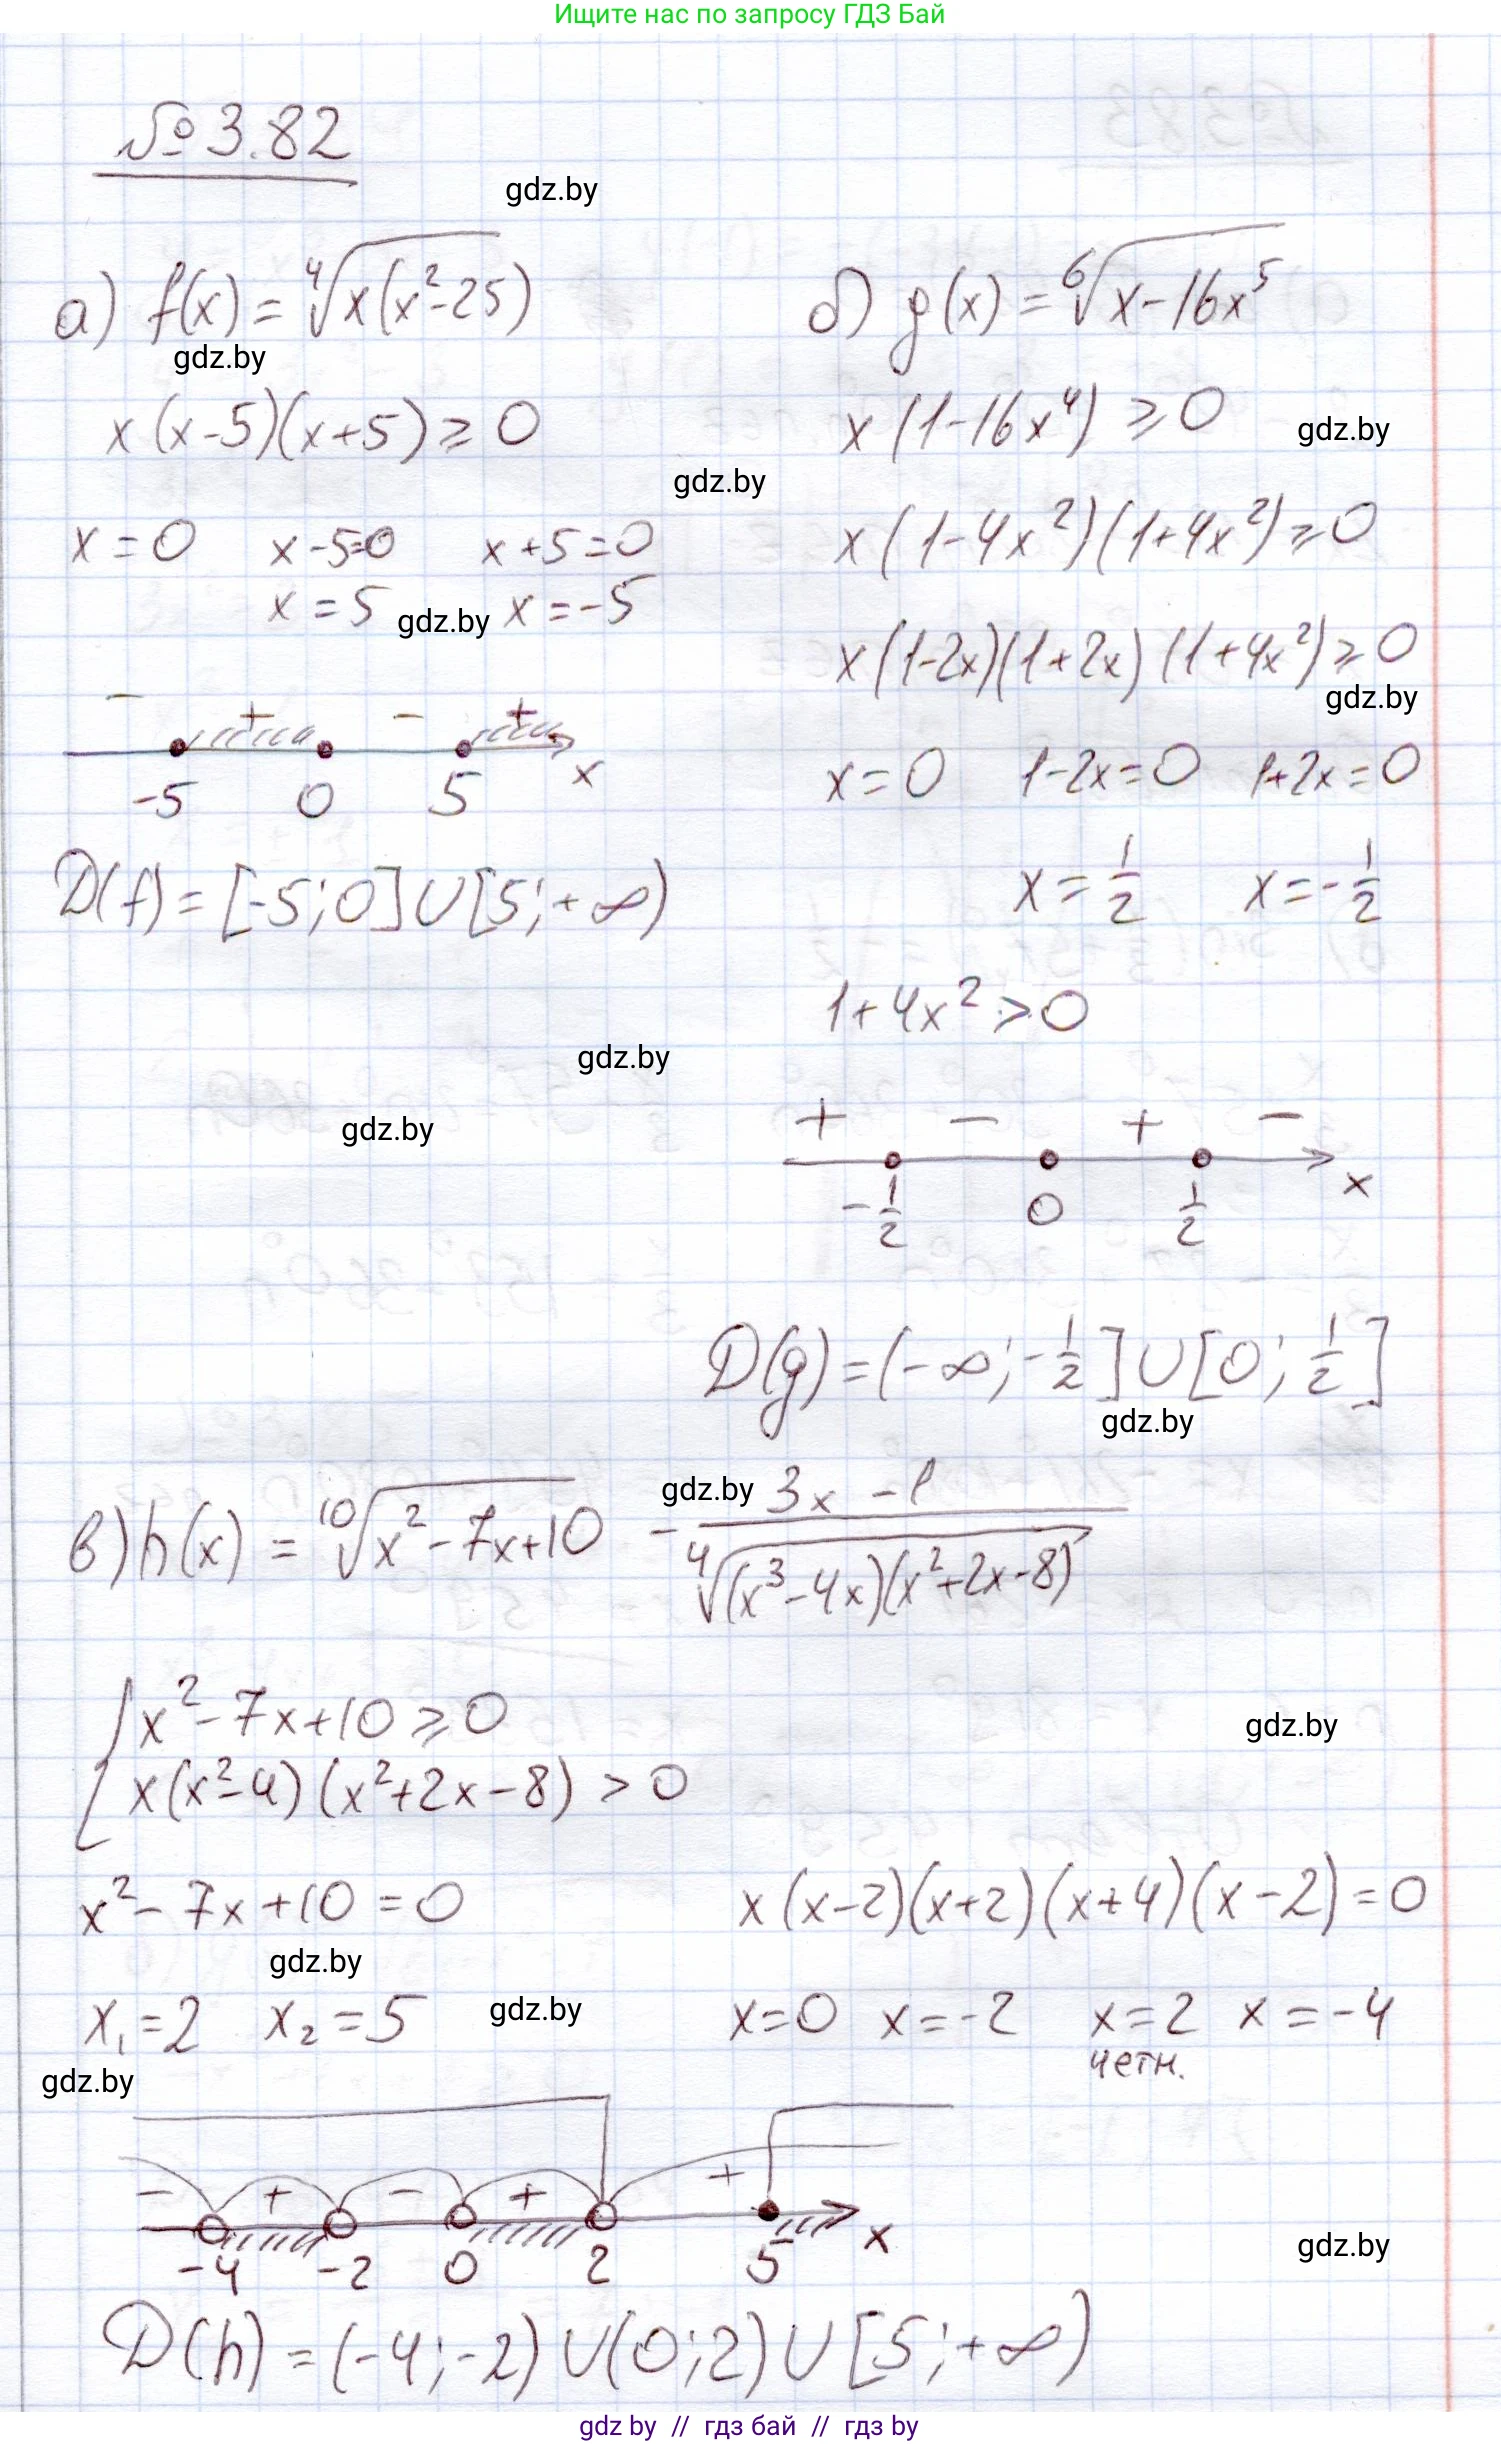 Ищите нас по запросу ГДЗ Бай
№ 3.82
gdz.by
а) f(x) = ⁴√x(x²-25)
gdz.by
x(x-5)(x+5) ≥ 0
gdz.by
x=0 x-5=0 x+5=0
x=5 gdz.by x=-5
- + - +
-5 0 5 x
D(f) = [-5;0]∪[5;+∞)
б) g(x) = ⁶√x-16x⁵
x(1-16x⁴) ≥ 0 gdz.by
x(1-4x²)(1+4x²) ≥ 0
x(1-2x)(1+2x)(1+4x²) ≥ 0
gdz.by
x=0 1-2x=0 1+2x=0
x=1/2 x=-1/2
1+4x² > 0
gdz.by
gdz.by
+ - + -
-1/2 0 1/2 x
D(g) = (-∞;-1/2]∪[0;1/2]
gdz.by
в) h(x) = ¹⁰√x²-7x+10 - (3x-1)/⁴√(x³-4x)(x²+2x-8)
gdz.by
{ x²-7x+10 ≥ 0
x(x²-4)(x²+2x-8) > 0
gdz.by
x²-7x+10=0 x(x-2)(x+2)(x+4)(x-2)=0
gdz.by
x₁=2 x₂=5 gdz.by x=0 x=-2 x=2 x=-4
четн.
gdz.by
- + - + +
-4 -2 0 2 5 x
gdz.by
D(h) = (-4;-2)∪(0;2)∪[5;+∞)
gdz by // гдз бай // гдз by